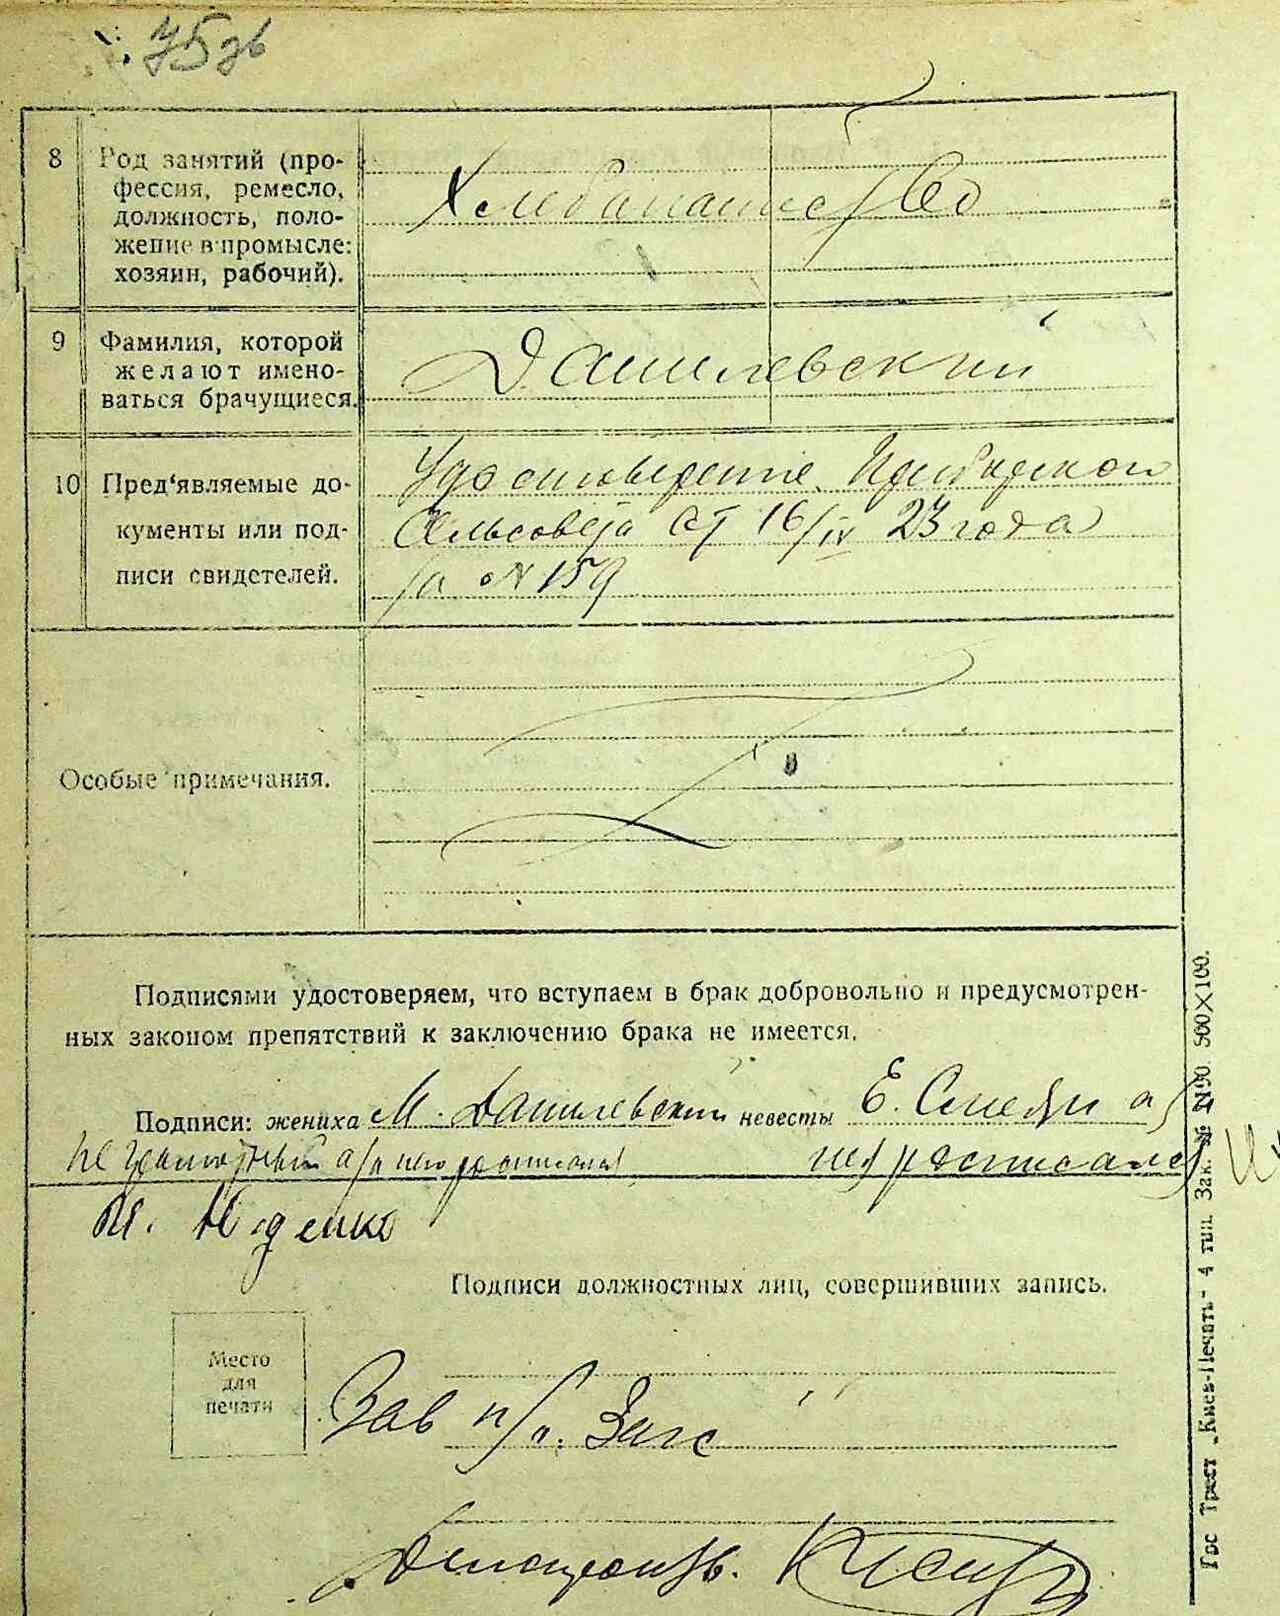 75 зв
8 Род занятий (про-
фессия, ремесло,
должность, поло-
жение в промысле:
хозяин, рабочий).
Хлебопашество
9 Фамилия, которой
желают имено-
ваться брачущиеся.
Данилевский
10 Пред'являемые до-
кументы или под-
писи свидетелей.
Удостоверение
Сельсовета от 16/IV 23 года
за № 159
Особые примечания.
Подписями удостоверяем, что вступаем в брак добровольно и предусмотрен-
ных законом препятствий к заключению брака не имеется.
Подписи: жениха М. Данилевский невесты Е.
неграмотный а за него расписался расписался
Место
для
печати
Подписи должностных лиц, совершивших запись.
Зав п/о. Загс
Делопроизв.
Гос Трест „Киев-Печать" 4 тип. Зак. № 560×100.